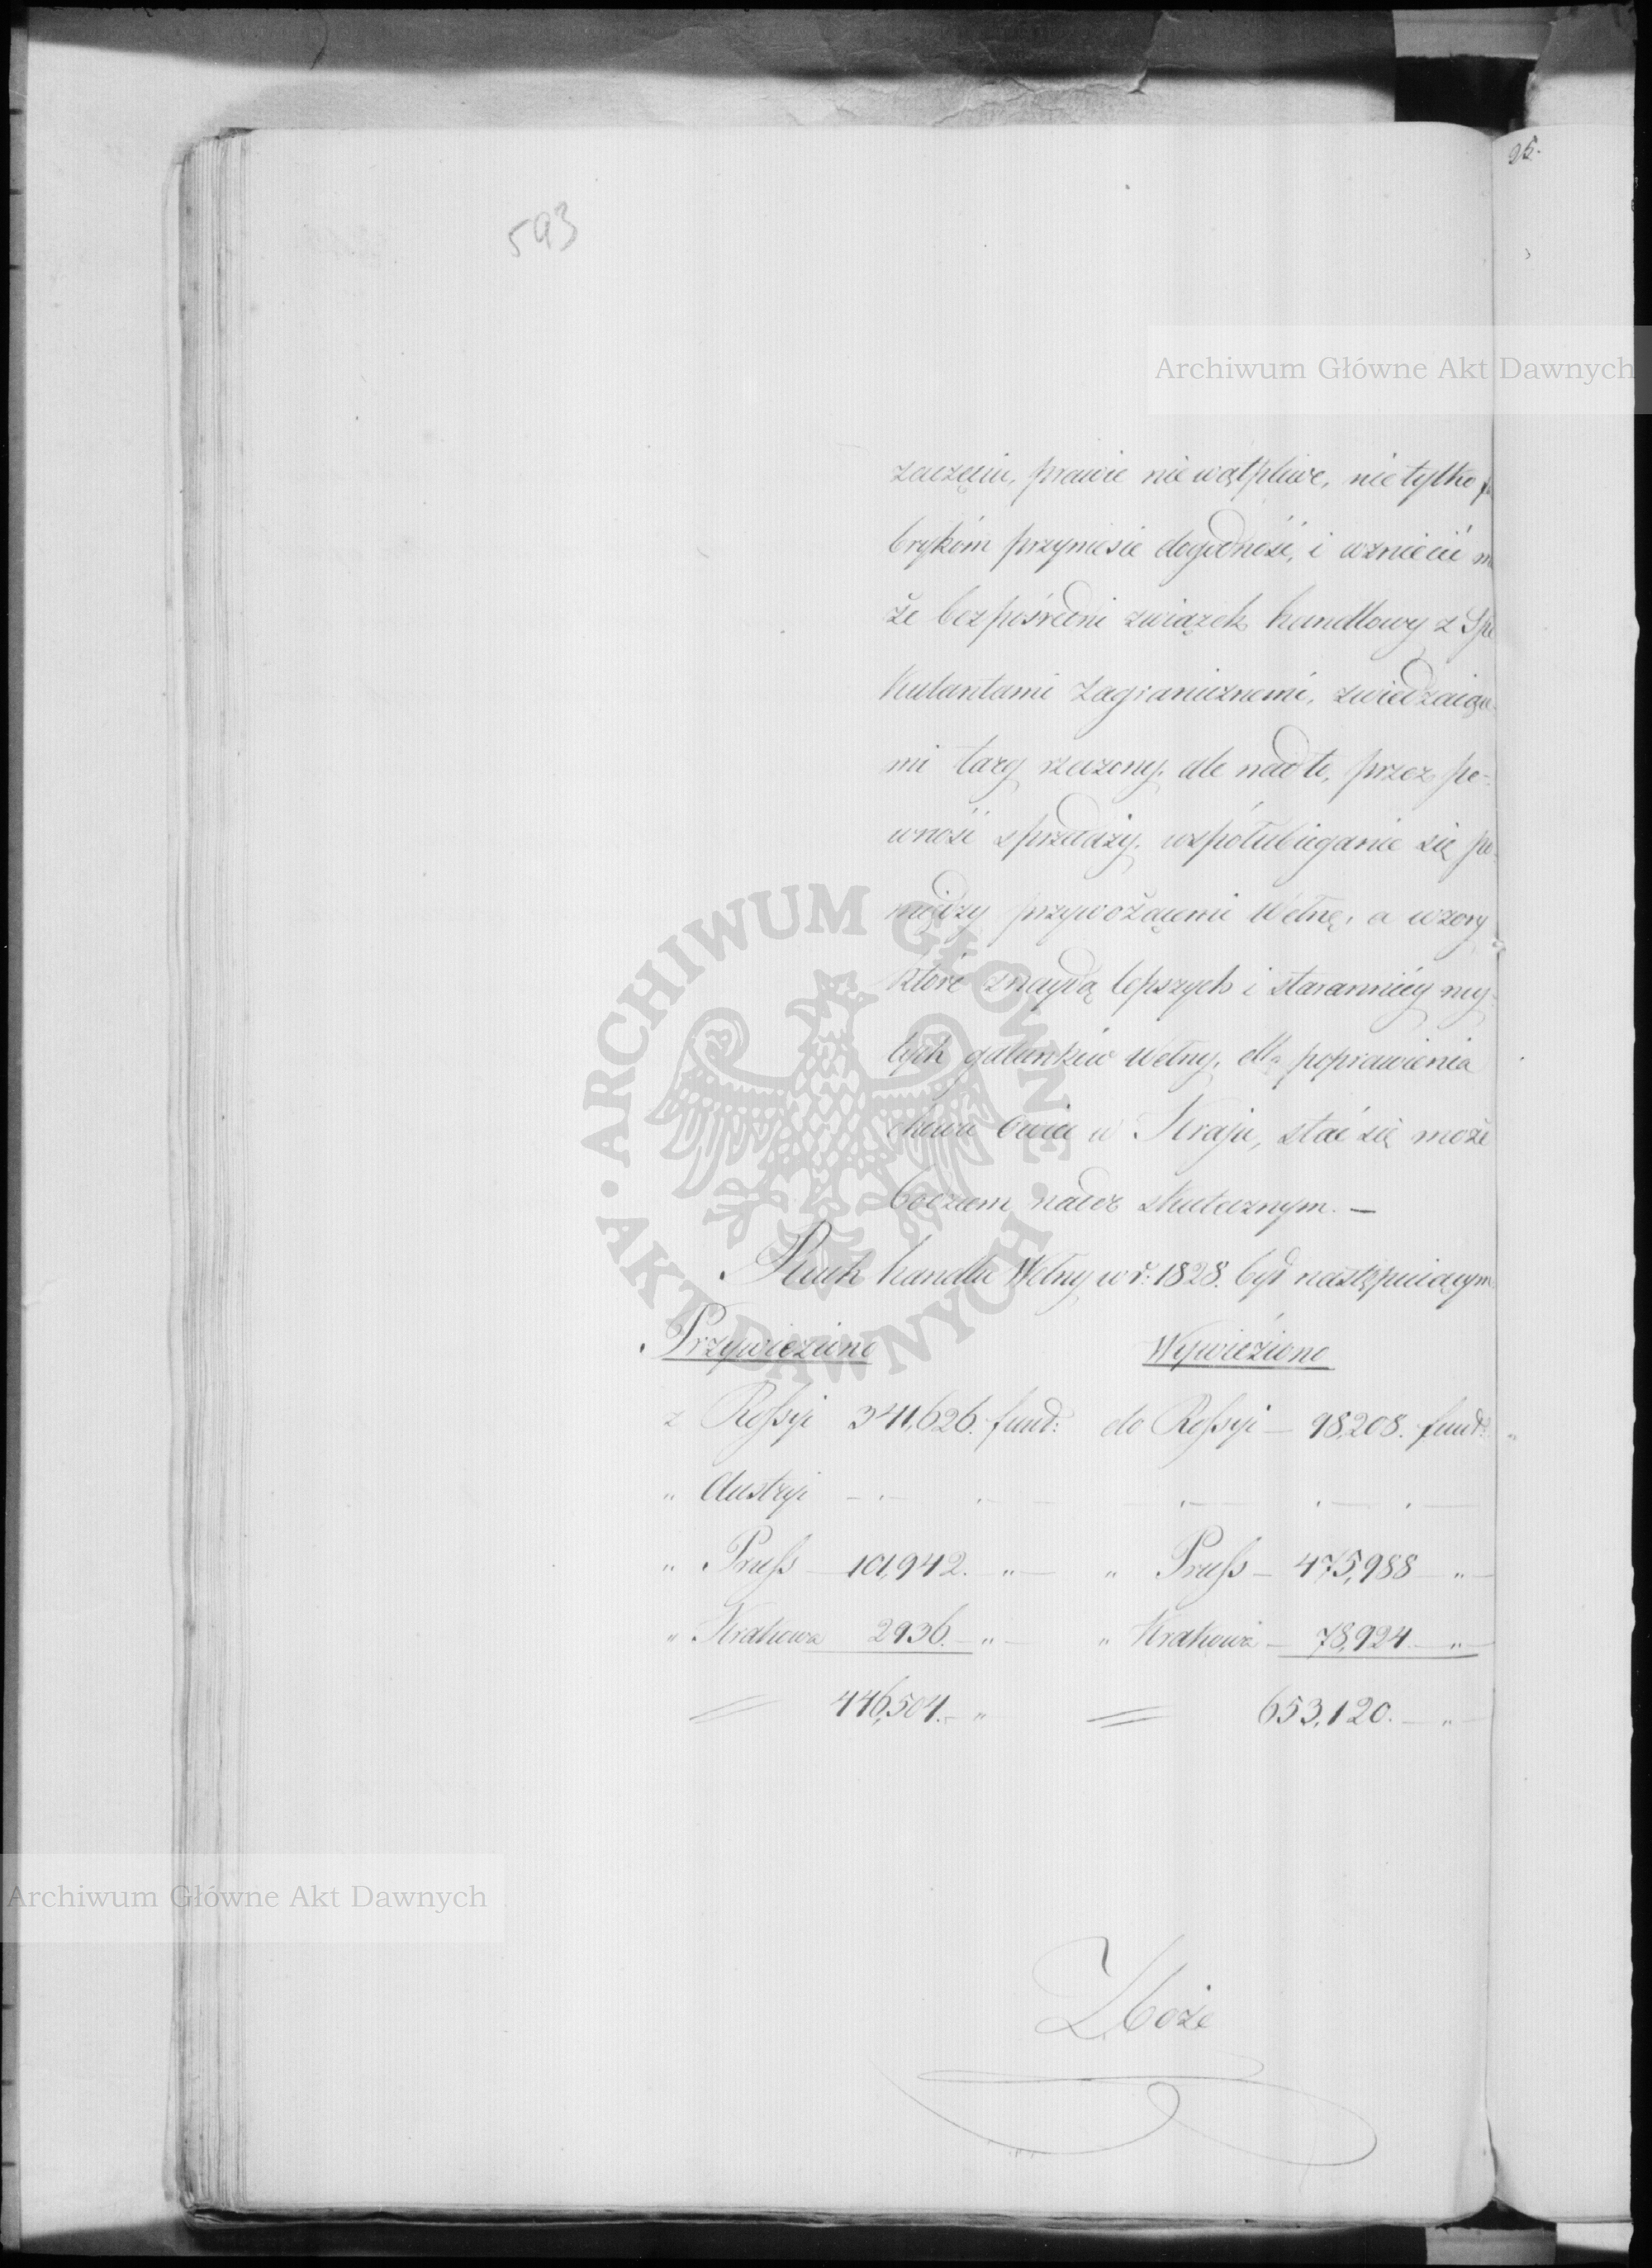 95.
593
Archiwum Główne Akt Dawnych
zaczęciu, prawie niewątpliwe, nietylko fa
brykóm przyniesie dogodność, i wzniecić mo
że bezpośredni związek handlowy z Spe
kulantami zagranicznemi, zwiedzaiące
mi targ rzeczony, ale nadto, przez pe-
wność sprzedaży, współubieganie się po
między przywożącemi Wełnę, a wzory
które znaydą lepszych i staranniéy my
tych gatunków Wełny, dla poprawienia
chowu Owiec w Kraju, stać się może
bodzcem nader skutecznym. —
Ruch handlu Wełny w r: 1828. był następuiącym
Przywieziono Wywieziono
z Rossyi 341,626. funt: do Rossyi — 98,208. funt:
" Austryi — . — . — — . — . — . —
" Pruss — 101,942. " — " Pruss — 475,988 — " —
" Krakowa 2936. — " — " Krakowa — 78,924 — " —
= 446,504. — " = 653,120. — " —
Archiwum Główne Akt Dawnych
Zboże
ARCHIWUM GŁÓWNE AKT DAWNYCH